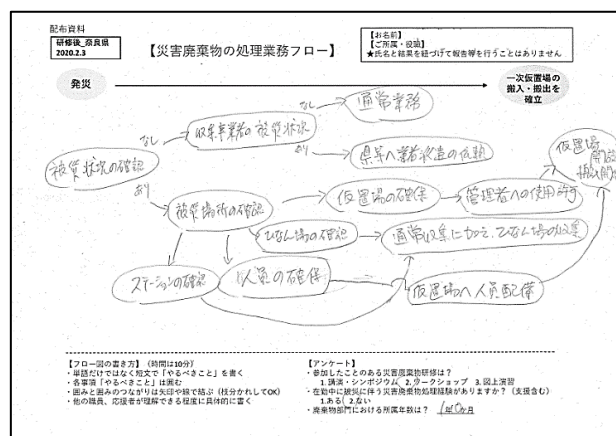 配布資料
研修後_奈良県
2020.2.3
【災害廃棄物の処理業務フロー】
【お名前】
【ご所属・役職】
★氏名と結果を紐づけて報告等を行うことはありません
発災
一次仮置場の
搬入・搬出を
確立
なし
通常業務
収集業者の被災状況
あり
県等へ業者派遣の依頼
被災状況の確認
あり
被災場所の確認
仮置場の確保
管理者への使用許可
仮置場
開設
搬入開始
ひなん場の確認
通常収集に加え、ひなん場の収集
ステーションの確認
人員の確保
仮置場へ人員配備
【フロー図の書き方】(時間は10分)
・単語だけではなく短文で「やるべきこと」を書く
・各事項「やるべきこと」は囲む
・囲みと囲みのつながりは矢印や線で結ぶ(枝分かれしてOK)
・他の職員、応援者が理解できる程度に具体的に書く
【アンケート】
・参加したことのある災害廃棄物研修は?
1. 講演・シンポジウム 2. ワークショップ 3. 図上演習
・在勤中に被災に伴う災害廃棄物処理経験がありますか?(支援含む)
1.ある 2.ない
・廃棄物部門における所属年数は? 1年10ヶ月